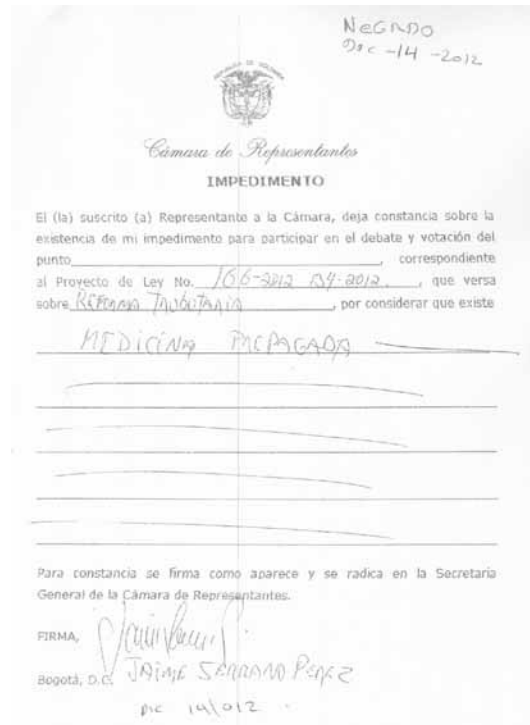 NEGADO
Dic -14 -2012
REPUBLICA DE COLOMBIA
Cámara de Representantes
IMPEDIMENTO
El (la) suscrito (a) Representante a la Cámara, deja constancia sobre la
existencia de mi impedimento para participar en el debate y votación del
punto____________, correspondiente
al Proyecto de Ley No. 166-2012 134-2012, que versa
sobre REFORMA TRIBUTARIA, por considerar que existe
MEDICINA PREPAGADA
Para constancia se firma como aparece y se radica en la Secretaria
General de la Cámara de Representantes.
FIRMA,
Bogotá, D.C. JAIME SERRANO PEREZ
Dic 14/012